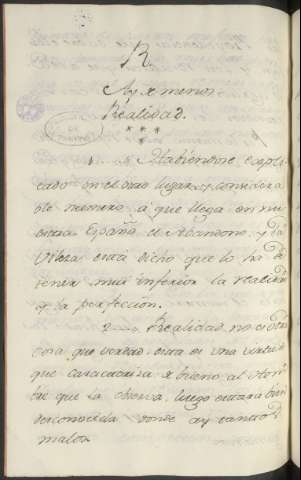 R.
Ay de menos
Realidad.
* * *
*
1. Habiendose expli-
cado en el otro lugar, y considera
ble numero a que llega en nu
estra España el Abandono, y la
esta dicho que lo ha de
tener mui inferior la realidad
y la perfeccion.
2 Realidad no es otra
cosa que verdad: esta es una virtud
que caracteriza de bueno al Hom
bre que la observa, luego estará bien
desconocida donde ay tantos
malos.